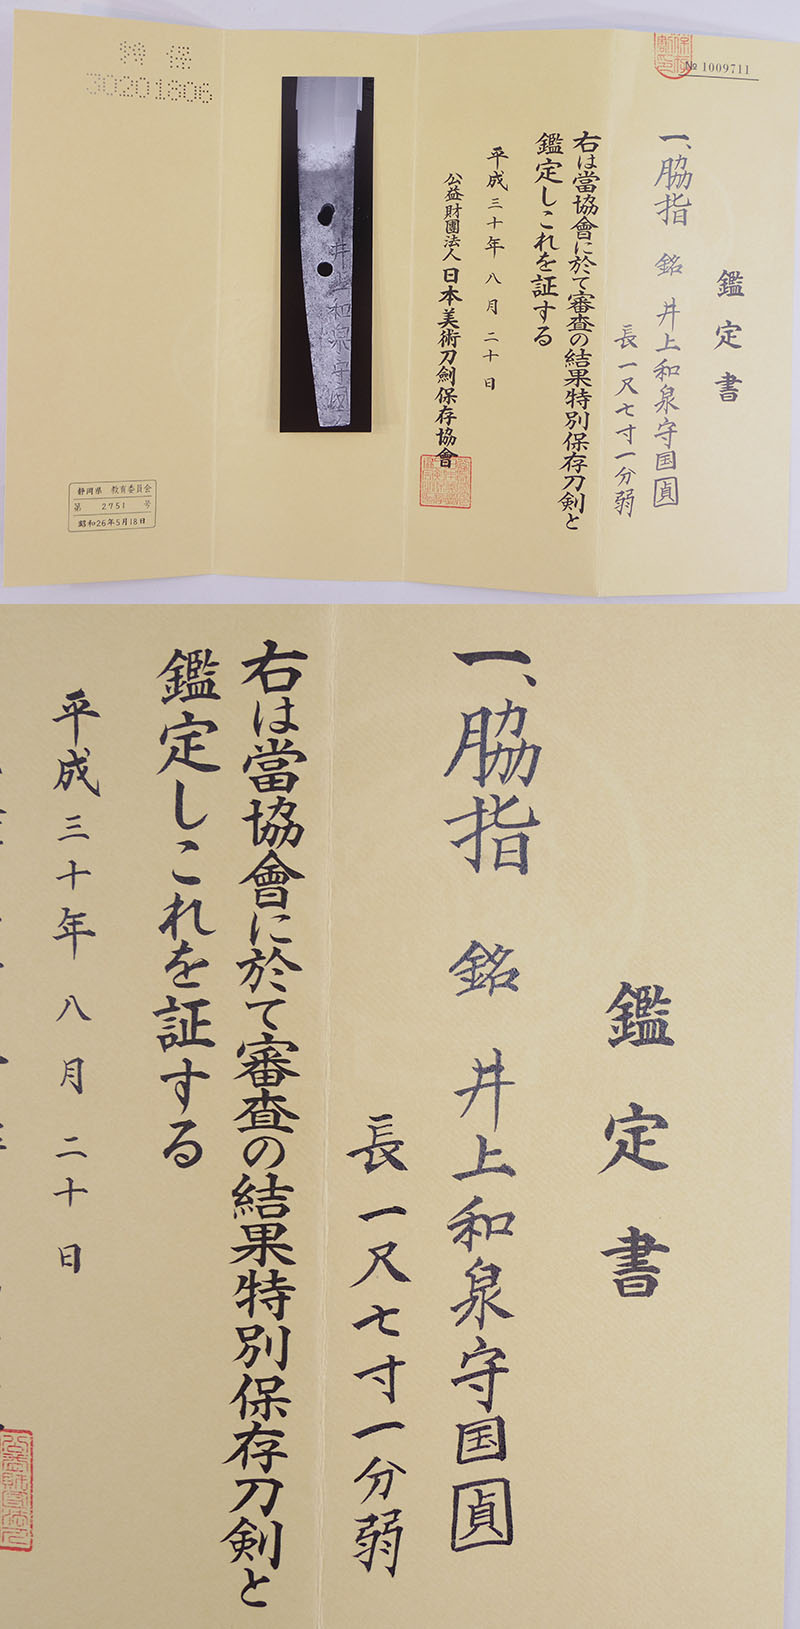 № 1009711
鑑定書
一、脇指 銘 井上和泉守国貞
長 一尺七寸一分弱
右は當協會に於て審査の結果特別保存刀剣と
鑑定しこれを証する
平成三十年八月二十日
公益財團法人 日本美術刀劍保存協會
井上和泉守国
特 保
30201806
静岡県 教育委員会
第 2751 号
昭和26年5月18日
鑑定書
一、脇指 銘 井上和泉守国貞
長 一尺七寸一分弱
右は當協會に於て審査の結果特別保存刀剣と
鑑定しこれを証する
平成三十年八月二十日